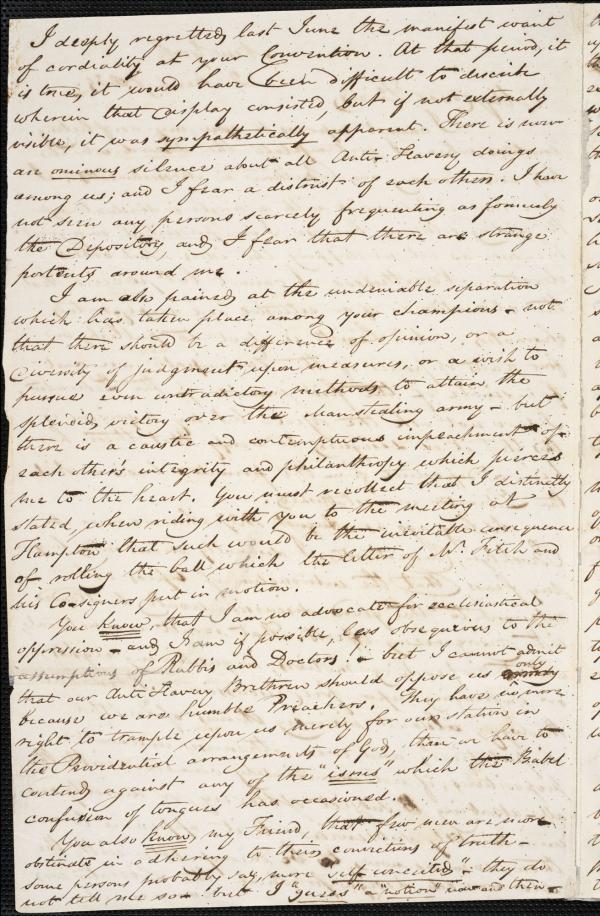 I deeply regretted, last June the manifest want
of cordiality at your Convention. At that period, it
is true, it would have been difficult to describe
wherein that display consisted, but if not externally
visible, it was sympathetically apparent. There is now
an ominous silence about all Anti-Slavery doings
among us; and I fear a distrust of each other. I have
not seen any persons scarcely frequenting as formerly
the Depository, and I fear that there are strange
portents around me.
I am also pained, at the undeniable separation
which has taken place among your champions - not
that there should be a difference of opinion, or a
diversity of judgment upon measures, or a wish to
pursue even contradictory methods to attain the
splendid victory over the Manstealing army - but
there is a caustic and contemptuous impeachment of
each other's integrity and philanthropy which pierces
me to the heart. You must recollect that I distinctly
stated, when riding with you to the meeting at
Hampton that such would be the inevitable consequence
of rolling the ball which the letter of Mr. Fitch and
his Co-signers put in motion.
You know, that I am no advocate for ecclesiastical
oppression - and I am if possible, less obsequious to the
assumptions of Rabbis and Doctors! - but I cannot admit
that our Anti-Slavery Brethren should oppose us only
because we are humble Preachers. They have no more
right to trample upon us merely for our station in
the Providential arrangements of God, than we have to
contend against any of the "isms" which the Babel
confusion of tongues has occasioned.
You also know, my Friend, that few men are more
obstinate in adhering to their convictions of truth -
some persons probably say, more "self-conceited" - they do
not tell me so - but I "guess" a "notion" now and then -